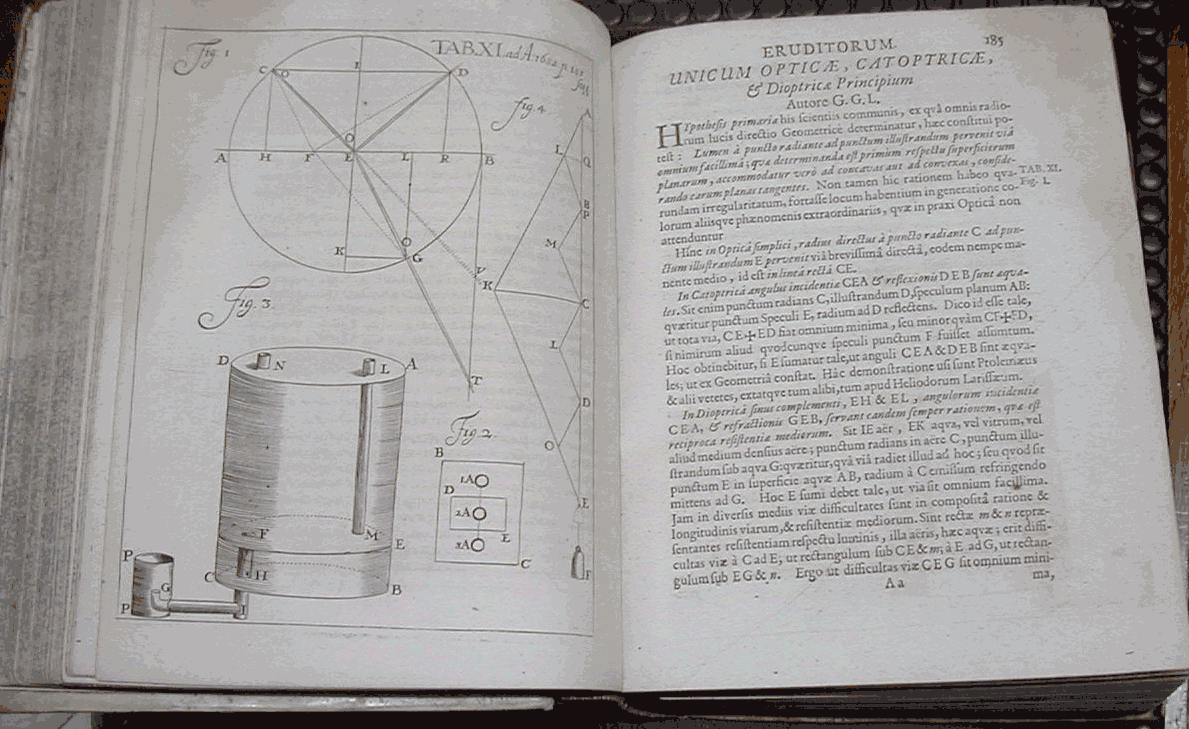 Fig. 1
TAB. XI. ad A. 1682 p. 185
fig. 4
C
O
I
D
A
H
F
Q
E
L
R
B
K
O
G
V
T
A
L
Q
B
P
M
K
C
L
D
O
E
F
Fig. 3.
D
N
L
A
F
M
E
P
C
G
H
B
P
I
Fig. 2.
B
1A
D
2A
E
3A
C
ERUDITORUM. 185
UNICUM OPTICÆ, CATOPTRICÆ,
& Dioptricæ Principium
Autore G. G. L.
HYpothesis primaria his scientiis communis, ex qvâ omnis radio-
rum lucis directio Geometricè determinatur, hæc constitui po-
test: Lumen à puncto radiante ad punctum illustrandum pervenit viâ
omnium facillimâ; qvæ determinanda est primùm respectu superficierum
planarum, accommodatur verò ad concavas aut ad convexas, conside-
rando earum planas tangentes. Non tamen hîc rationem habeo qva- TAB. XI.
rundam irregularitatum, fortasse locum habentium in generatione co- Fig. 1.
lorum aliisqve phænomenis extraordinariis, qvæ in praxi Opticâ non
attenduntur
Hinc in Opticâ simplici, radius directus à puncto radiante C ad pun-
ctum illustrandum E pervenit viâ brevissimâ directâ, eodem nempe ma-
nente medio, id est in linea rectâ CE.
In Catoptricâ angulus incidentiæ CEA & reflexionis DEB sunt æqva-
les. Sit enim punctum radians C, illustrandum D, speculum planum AB;
qværitur punctum Speculi E, radium ad D reflectens. Dico id esse tale,
ut tota via, CE+ED fiat omnium minima, seu minor qvàm CF+FD,
si nimirum aliud qvodcunqve speculi punctum F fuisset assumtum.
Hoc obtinebitur, si E sumatur tale, ut anguli CEA & DEB sint æqva-
les; ut ex Geometriâ constat. Hâc demonstratione usi sunt Ptolemæus
& alii veteres, extatqve tum alibi, tum apud Heliodorum Larissæum.
In Dioptricâ sinus complementi, EH & EL, angulorum incidentiæ
CEA, & refractionis GEB, servant eandem semper rationem, qvæ est
reciproca resistentiæ mediorum. Sit IE aër, EK aqva, vel vitrum, vel
aliud medium densius aëre; punctum radians in aëre C, punctum illu-
strandum sub aqva G: qværitur, qvâ viâ radiet illud ad hoc; seu qvod sit
punctum E in superficie aqvæ AB, radium à C emissum refringendo
mittens ad G. Hoc E sumi debet tale, ut via sit omnium facillima.
Jam in diversis mediis viæ difficultates sunt in compositâ ratione &
longitudinis viarum, & resistentiæ mediorum. Sint rectæ m & n repræ-
sentantes resistentiam respectu luminis, illa aëris, hæc aqvæ; erit diffi-
cultas viæ à C ad E; ut rectangulum sub CE & m; à E ad G, ut rectan-
gulum sub EG & n. Ergo ut difficultas viæ CEG sit omnium mini-
A a
ma,